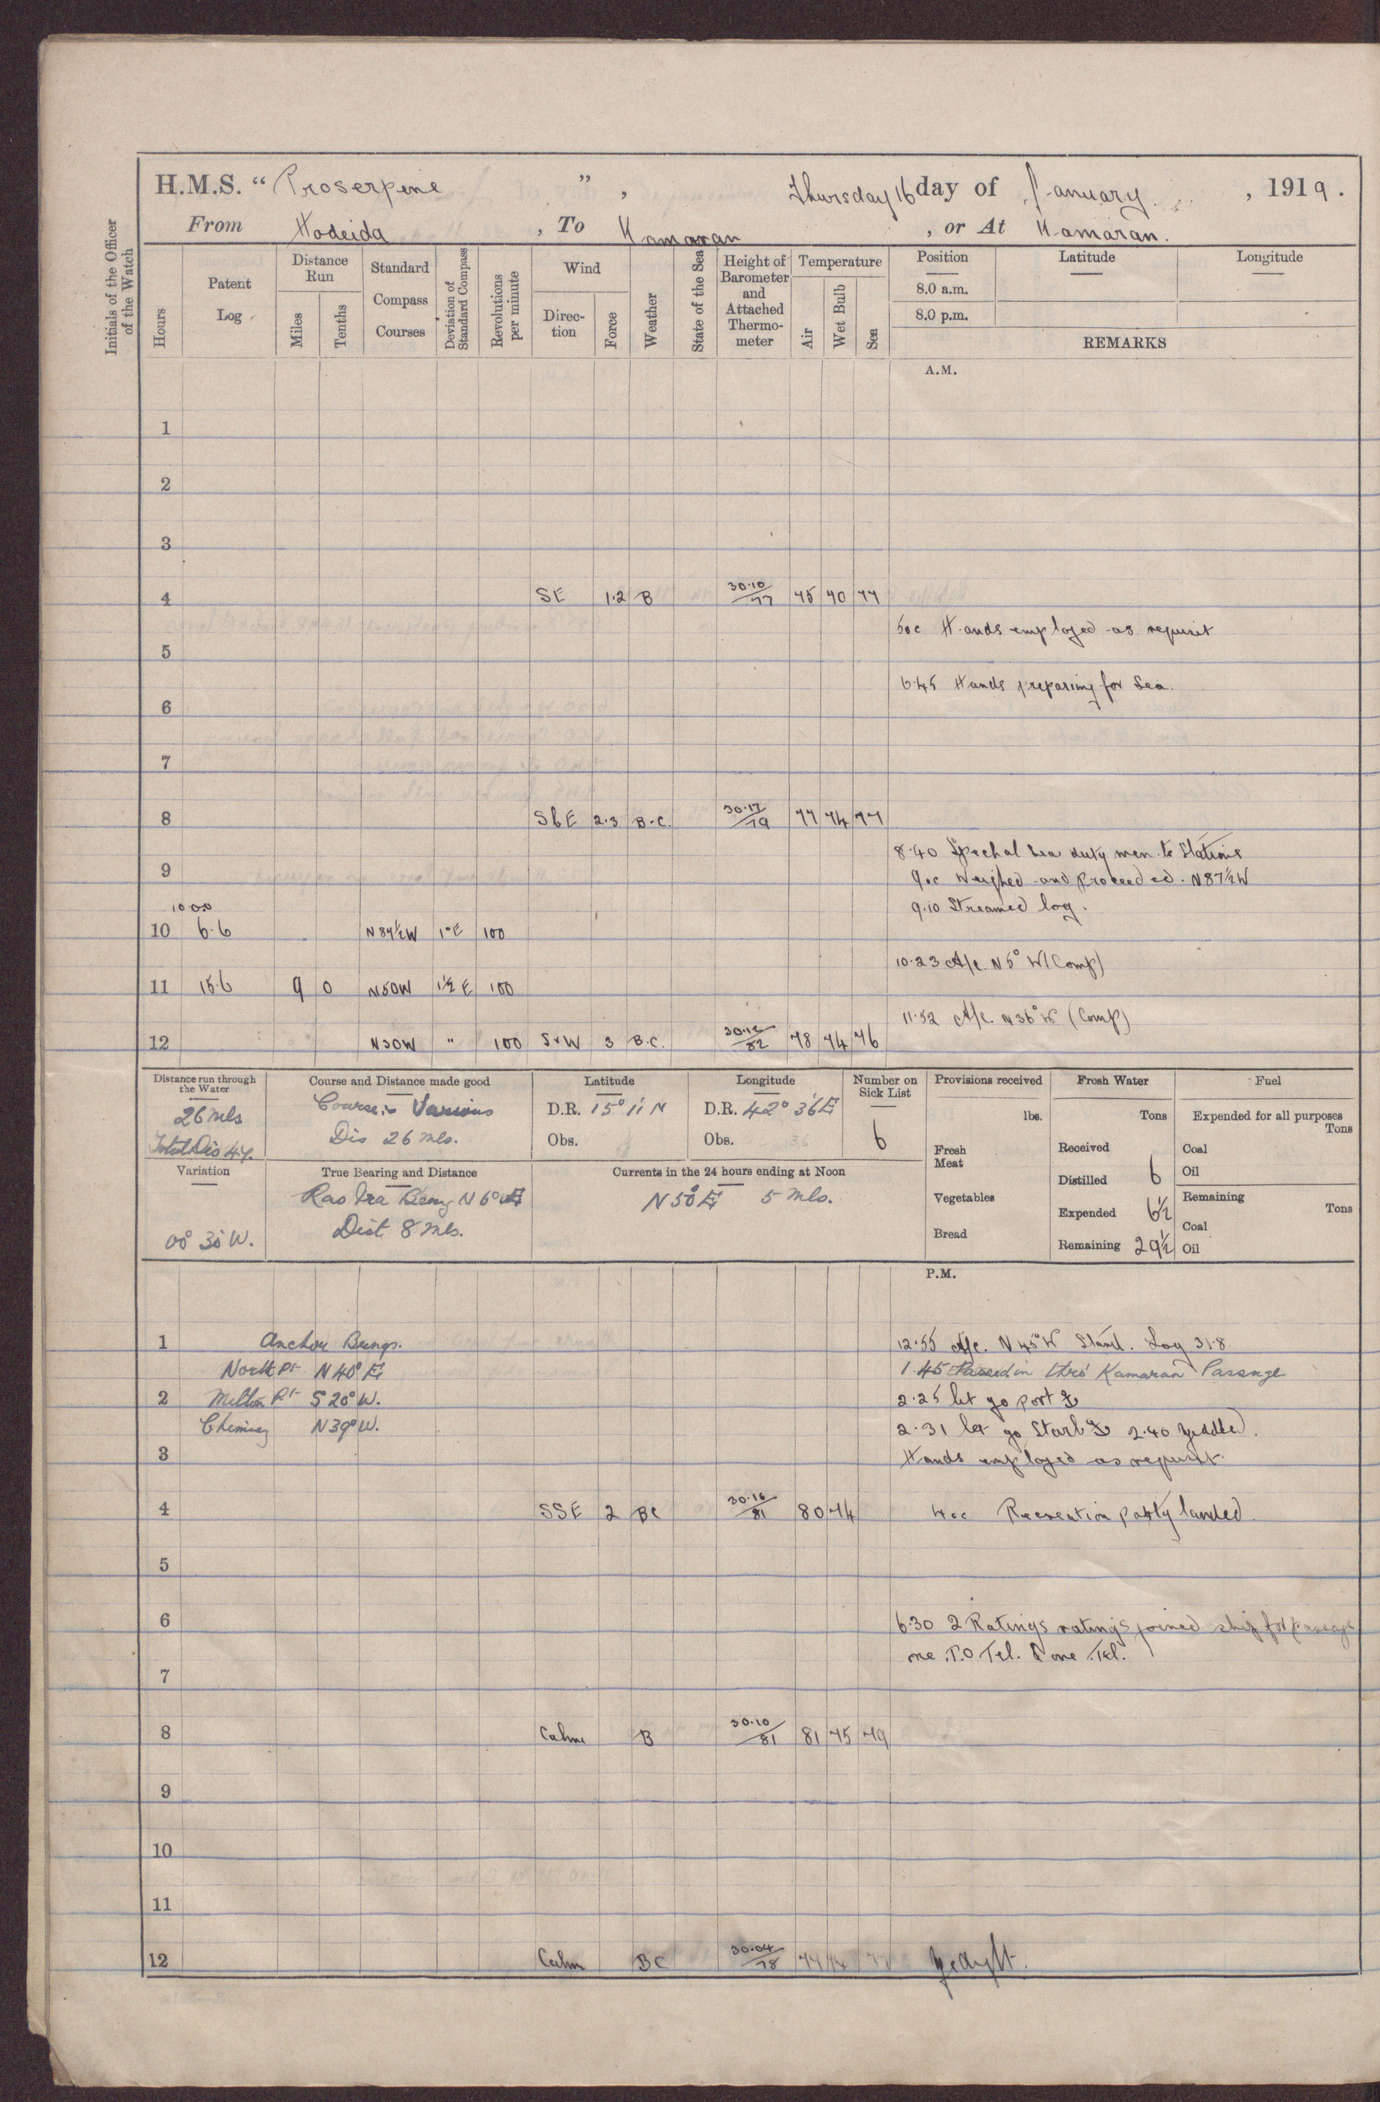 H.M.S. “ Proserpine ” , Thursday 16 day of January , 1919 .
From Hodeida , To Kamaran , or At Kamaran.
Initials of the Officer of the Watch
Hours
Patent Log
Distance Run
Miles
Tenths
Standard Compass Courses
Deviation of Standard Compass
Revolutions per minute
Wind
Direction
Force
Weather
State of the Sea
Height of Barometer and Attached Thermometer
Temperature
Air
Wet Bulb
Sea
Position
Latitude
Longitude
8.0 a.m.
8.0 p.m.
REMARKS
A.M.
1
2
3
4 SE 1.2 B 30.10/77 75 70 77
Hands employed as requisit
5
6.45 Hands preparing for Sea.
6
7
8 SbE 2.3 B.C. 30.17/79 77 74 77
8.40 Special sea duty men to Stations
9
Weighed and Proceeded. N87½W
9.10 Streamed log.
10 6.6 N87½W 1°E 100
10.23 A/c N5°W (Comp)
11 15.6 9 0 N50W 1½E 100
11.52 A/c N36°W (Comp)
12 N30W " 100 3 B.C. 82 78 74 76
Distance run through the Water
26 mls
Total Dis 47.
Course and Distance made good
Course :- Various
Dis 26 mls.
Latitude
D.R. 15° 11' N
Obs.
Longitude
D.R. 42° 36' E
Obs.
Number on Sick List
6
Provisions received
lbs.
Fresh Meat
Vegetables
Bread
Fresh Water
Tons
Received
Distilled 6
Expended 6½
Remaining 29½
Fuel
Expended for all purposes
Tons
Coal
Oil
Remaining
Tons
Coal
Oil
Variation
00° 30' W.
True Bearing and Distance
Dist 8 mls.
Currents in the 24 hours ending at Noon
N 50° E 5 mls.
P.M.
1 Anchor Brngs.
12.55 A/c. N 45°W Stand. Log 31.8
North Pt N 40° E
1.45 Passed in thro' Kamaran Passage
2 Milton Pt S 20° W.
2.25 let go port ⚓
Chimney N 39° W.
2.31 let go Starb ⚓ 2.40 Middled.
3
Hands employed as requisit
4 SSE 2 BC 30.16/81 80 74
4.00 Recreation party landed
5
6
6.30 2 Ratings ratings joined ship for passage
one P.O. Tel. & one Tel.
7
8 Calm B 30.10/81 81 75 79
9
10
11
12 Calm BC 30.04/78